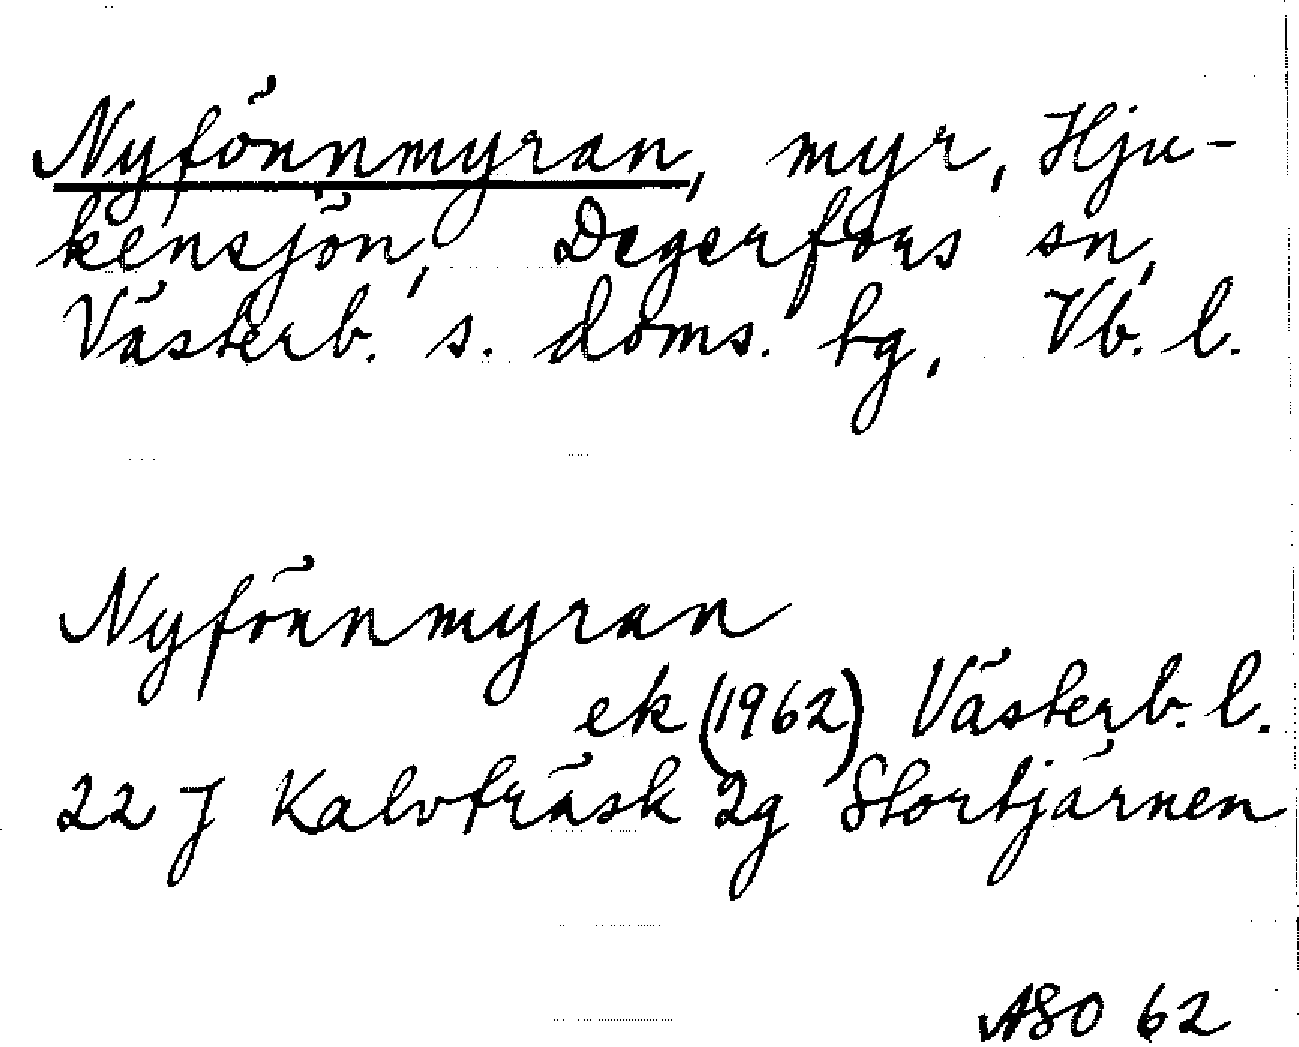 Nyfönnmyran, myr, Hju-
kensjön, Degerfors sn,
Västerb. s. doms. tg, Vb. l.
Nyfönnmyran
ek (1962) Västerb. l.
22 J Kalvträsk 2g Stortjärnen
ASO 62